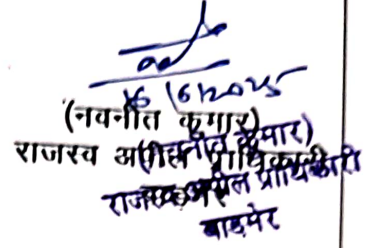 16/6/2025
(नवनीत कुमार)
राजस्व अपील प्राधिकारी
(नवनीत कुमार)
राजस्व अपील प्राधिकारी
बाड़मेर